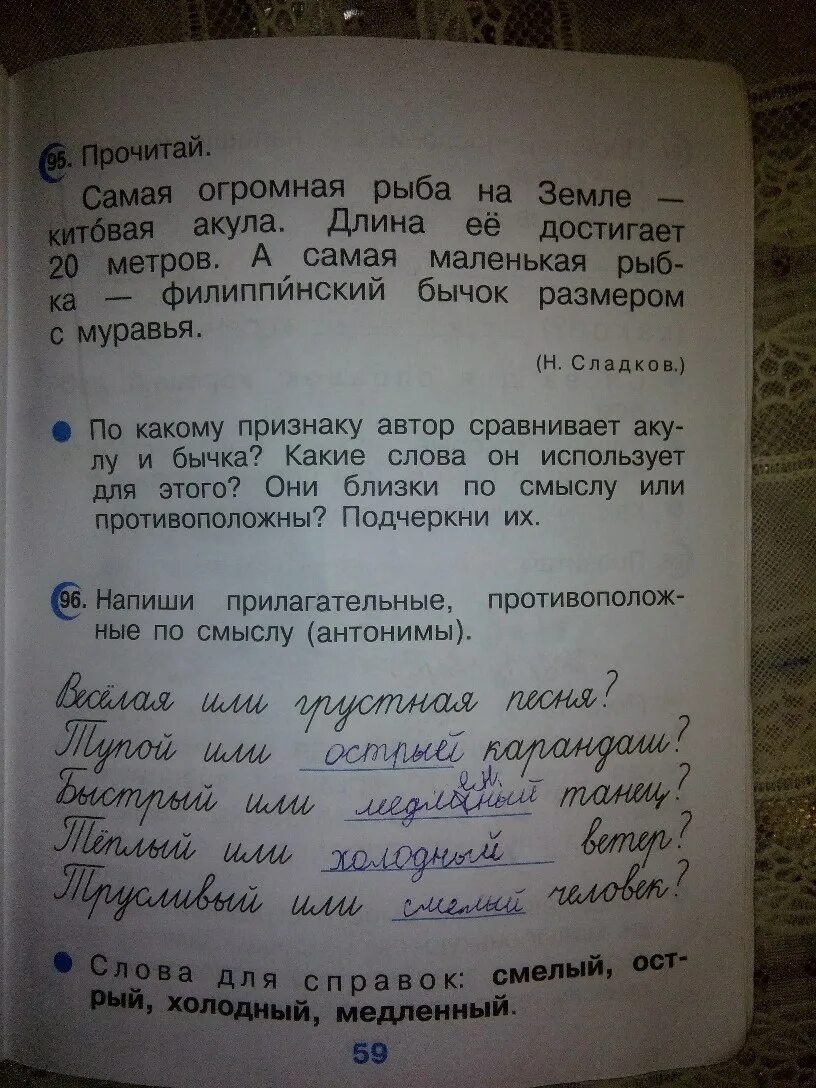 95. Прочитай.
Самая огромная рыба на Земле —
кито́вая акула. Длина её достигает
20 метров. А самая маленькая рыб-
ка — филиппи́нский бычок размером
с муравья.
(Н. Сладков.)
По какому признаку автор сравнивает аку-
лу и бычка? Какие слова он использует
для этого? Они близки по смыслу или
противоположны? Подчеркни их.
96. Напиши прилагательные, противополож-
ные по смыслу (антонимы).
Весёлая или грустная песня?
Тупой или острый карандаш?
Быстрый или медленный танец?
Тёплый или холодный ветер?
Трусливый или смелый человек?
Слова для справок: смелый, ост-
рый, холодный, медленный.
59